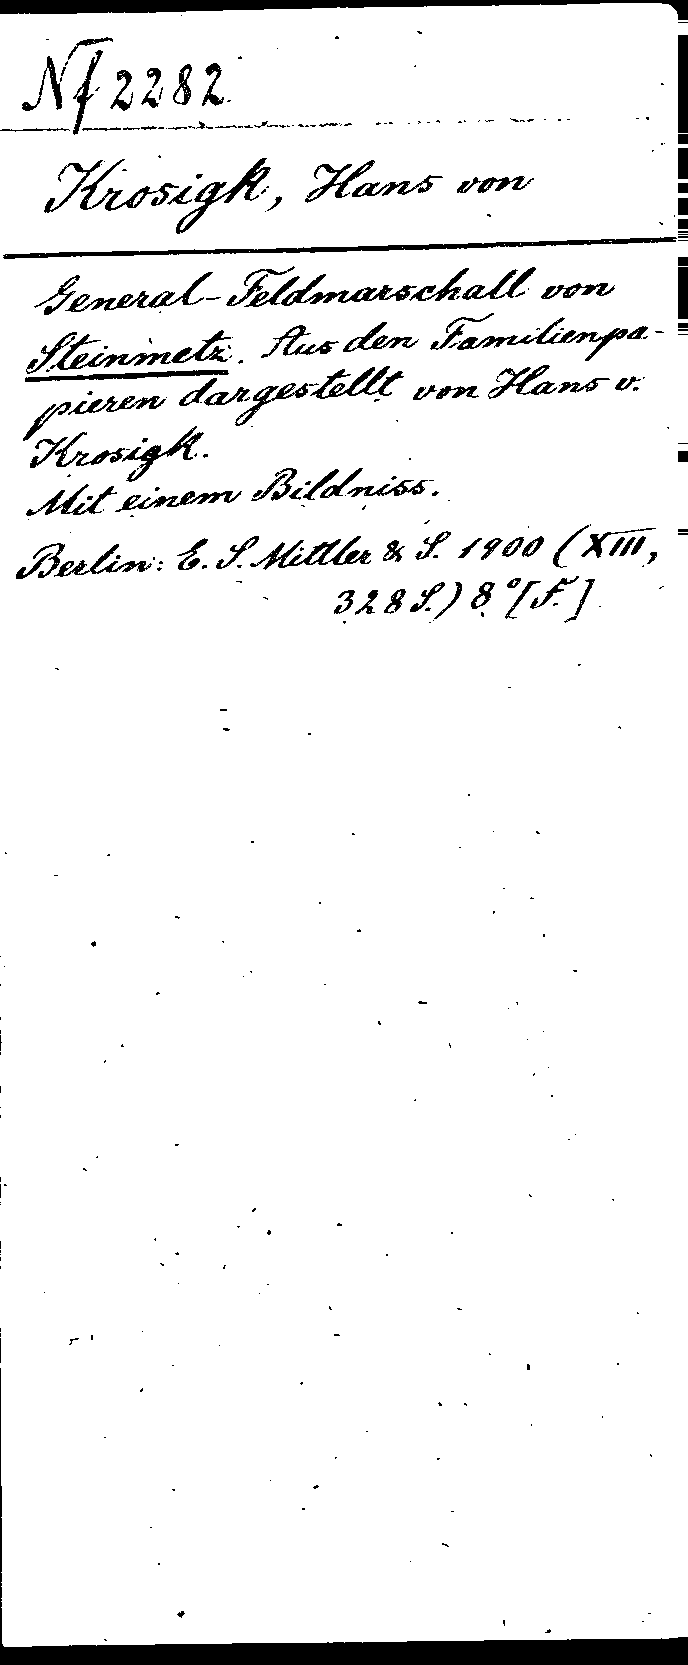 Nf 2282
Krosigk, Hans von
General-Feldmarschall von
Steinmetz. Aus den Familienpa-
pieren dargestellt von Hans v.
Krosigk.
Mit einem Bildniss.
Berlin: E. S. Mittler & S. 1900 (XIII,
328 S.) 8° [F.]